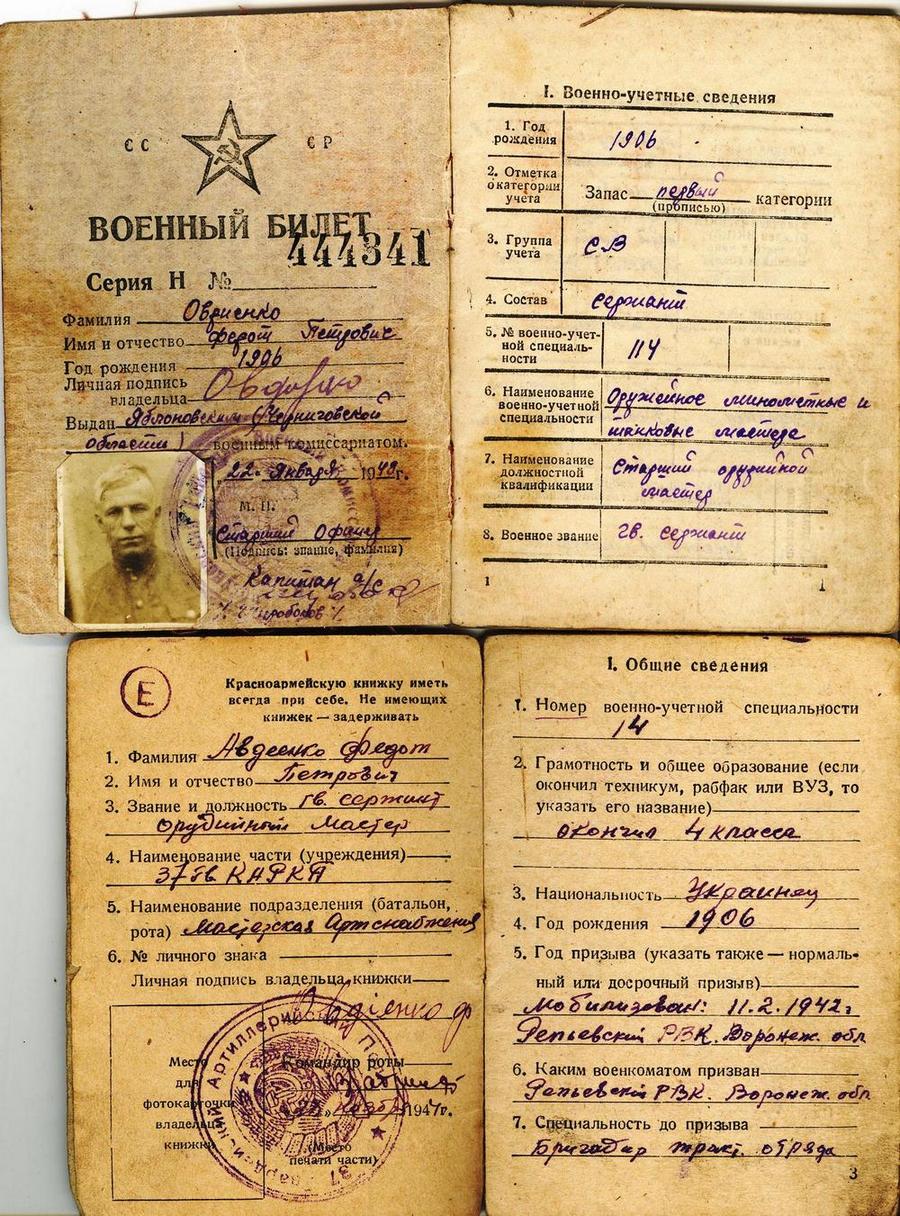 СС СР
ВОЕННЫЙ БИЛЕТ
444341
Серия Н №
Фамилия Овдиенко
Имя и отчество Федот Петрович
Год рождения 1906
Личная подпись
владельца
Выдан Яблоновским (Черниговской
области) военным комиссариатом.
22 Января 1948 г.
М. П.
Старший офицер
(Подпись: звание, фамилия)
Капитан а/с
I. Военно-учетные сведения
1. Год
рождения 1906
2. Отметка
о категории
учета Запас первый категории
(прописью)
3. Группа
учета СВ
4. Состав сержант
5. № военно-учет-
ной специаль-
ности 114
6. Наименование
военно-учетной
специальности Оружейное минометные и
танковые мастера
7. Наименование
должностной
квалификации Старший орудийной
мастер
8. Военное звание гв. сержант
1 1
Е
Красноармейскую книжку иметь
всегда при себе. Не имеющих
книжек — задерживать
1. Фамилия Авдеенко Федот
2. Имя и отчество Петрович
3. Звание и должность гв. сержант
орудийный мастер
4. Наименование части (учреждения)
37 гв КАРКА
5. Наименование подразделения (батальон,
рота) мастерская Артснабжения
6. № личного знака
Личная подпись владельца книжки
Овдіенко ф
Место
для
фотокарточки
владельца
книжки
Командир роты
1947г.
(Место
печати части)
I. Общие сведения
1. Номер военно-учетной специальности
14
2. Грамотность и общее образование (если
окончил техникум, рабфак или ВУЗ, то
указать его название)
окончил 4 класса
3. Национальность Украинец
4. Год рождения 1906
5. Год призыва (указать также — нормаль-
ный или досрочный призыв)
Мобилизован: 11.2.1942г
Репьевский РВК. Воронеж. обл
6. Каким военкоматом призван
Репьевский РВК. Воронеж. обл
7. Специальность до призыва
Бригадир тракт. отряда
3